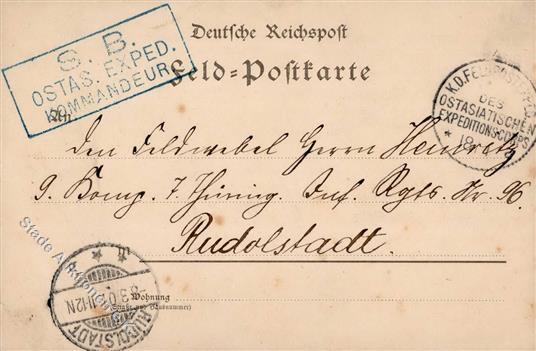 S. B.
OSTAS. EXPED.
KOMMANDEUR
Deutsche Reichspost
Feld=Postkarte
An
K.D. FELDPOST
DES
OSTASIATISCHEN
EXPEDITIONSCORPS
* 18
Den Feldwebel Herrn
9. Komp. 7. Thüring. Inf. Regts. Nr. 96.
Rudolstadt.
RUDOLSTADT
11-12N
Wohnung
(Straße und Hausnummer)